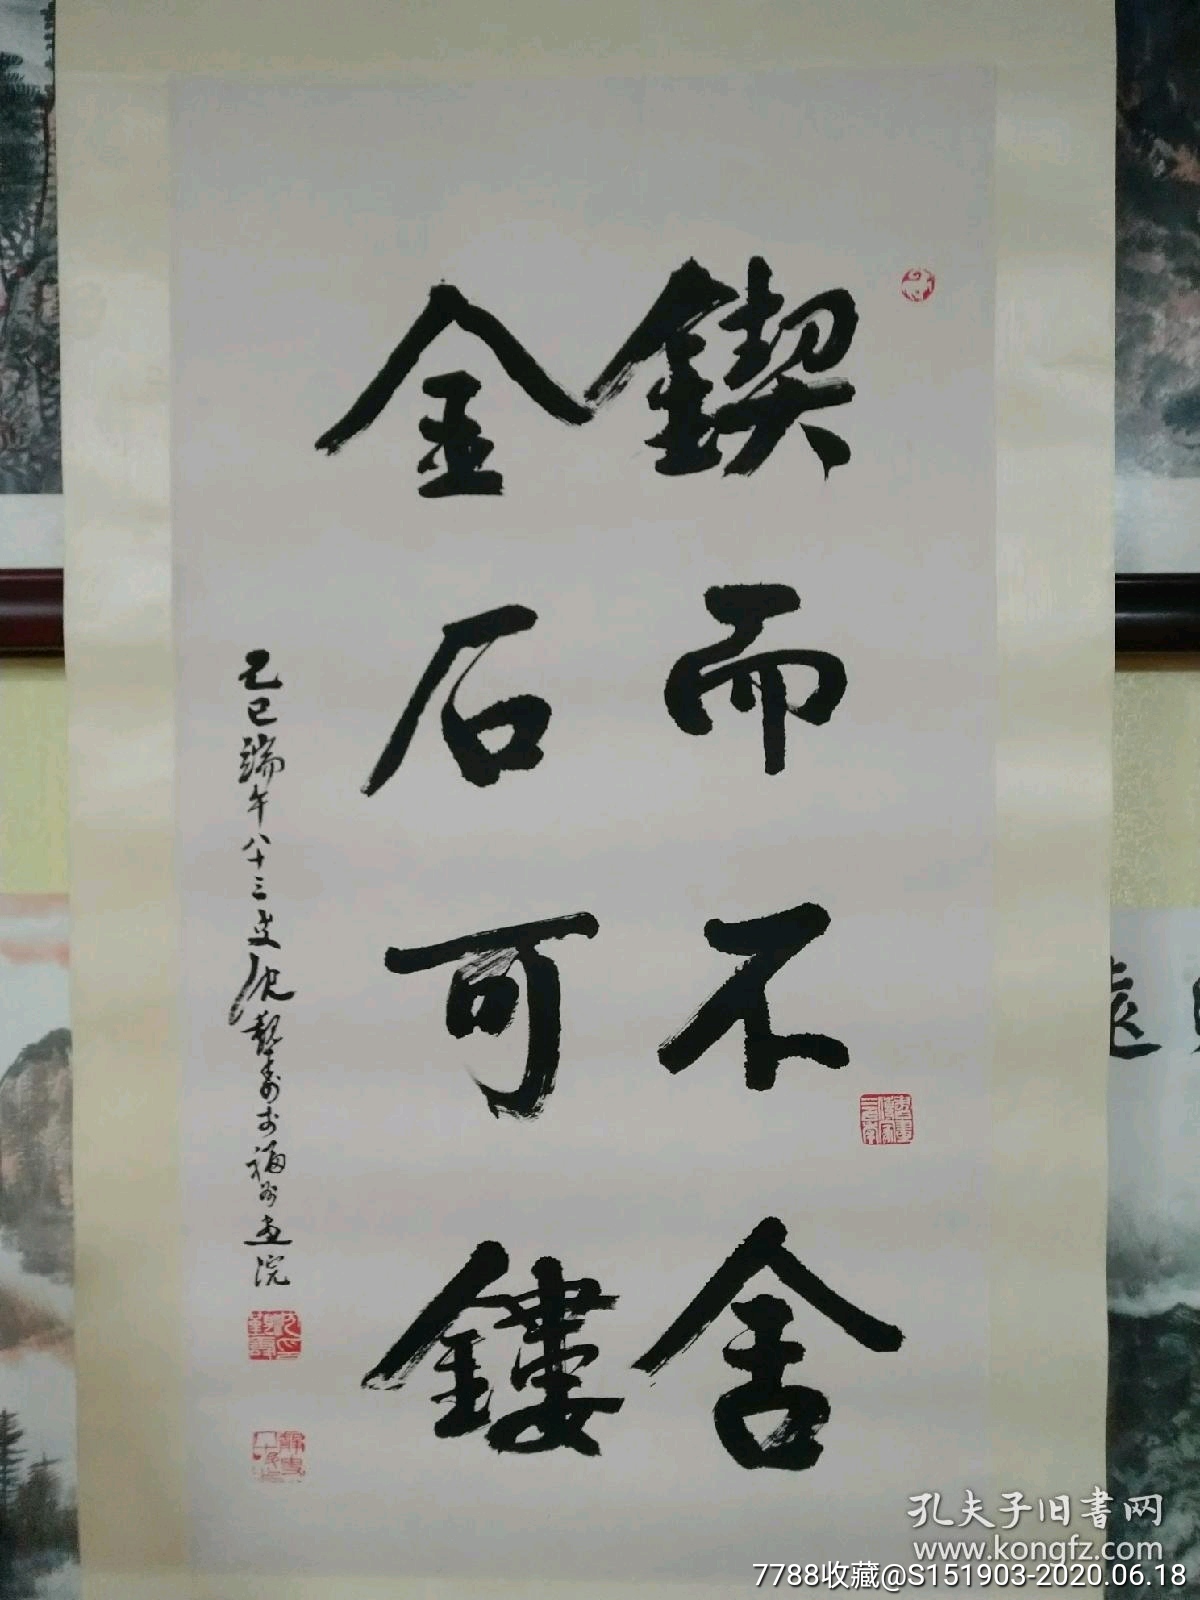 鍥而不舍
金石可鏤
己巳端午八十三叟沈覲壽於福州畫院
遠
孔夫子旧書网
www.kongfz.com
7788收藏@S151903-2020.06.18